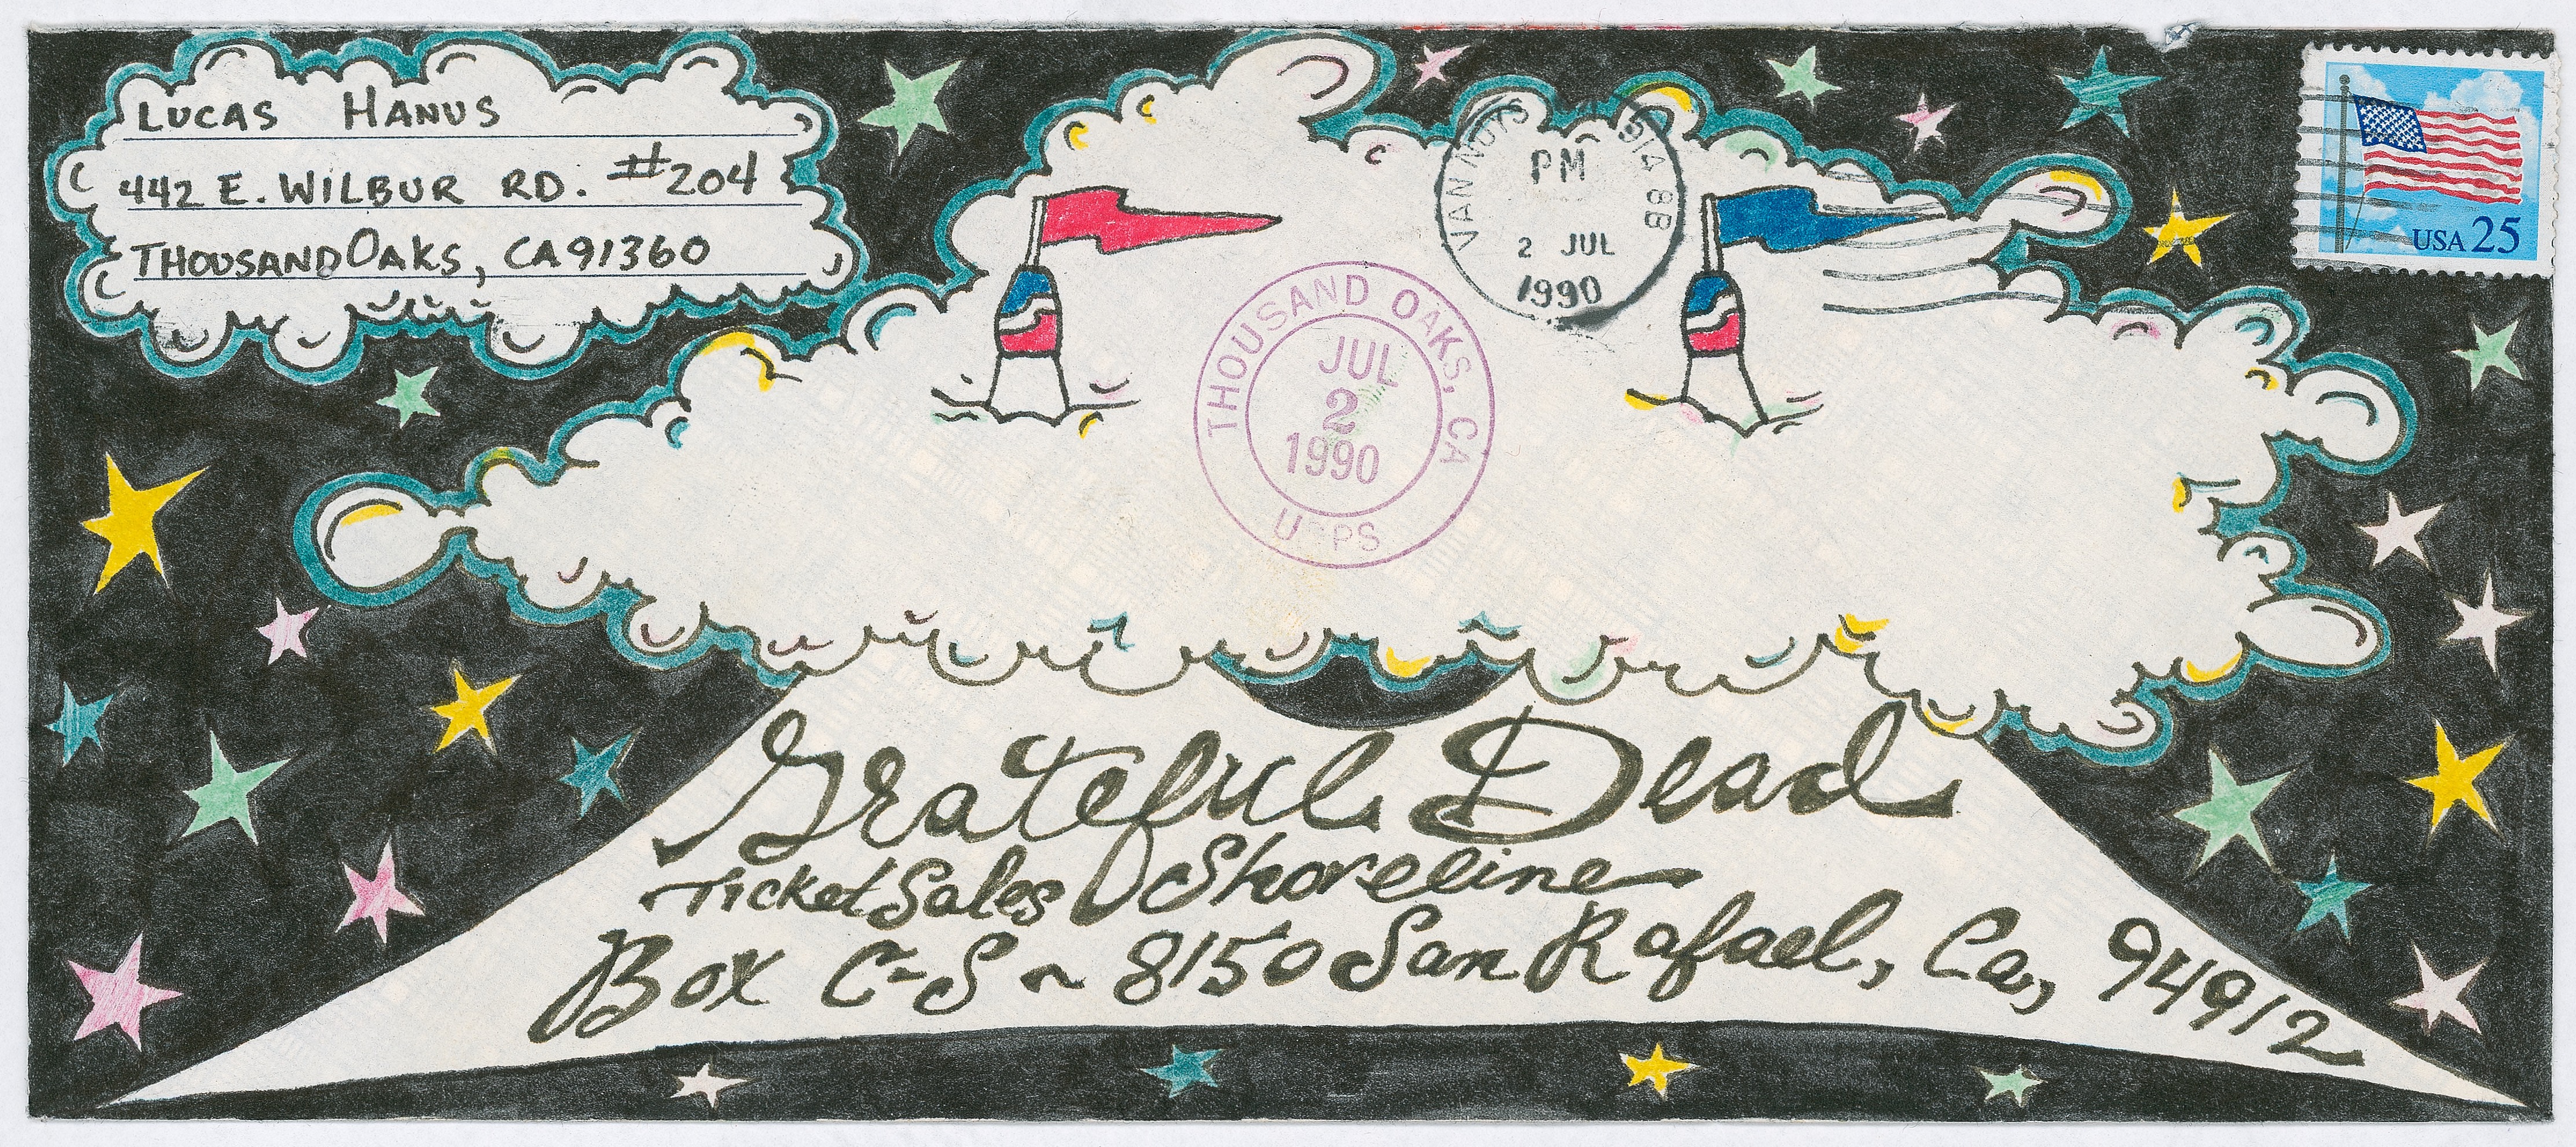 LUCAS HANUS
442 E. WILBUR RD. #204
THOUSAND OAKS, CA 91360
VAN NUYS 914 8B
PM
2 JUL
1990
USA 25
THOUSAND OAKS, CA
JUL
2
1990
USPS
Grateful Dead
Ticket Sales Shoreline
Box C-S ~ 8150 San Rafael, Ca, 94912